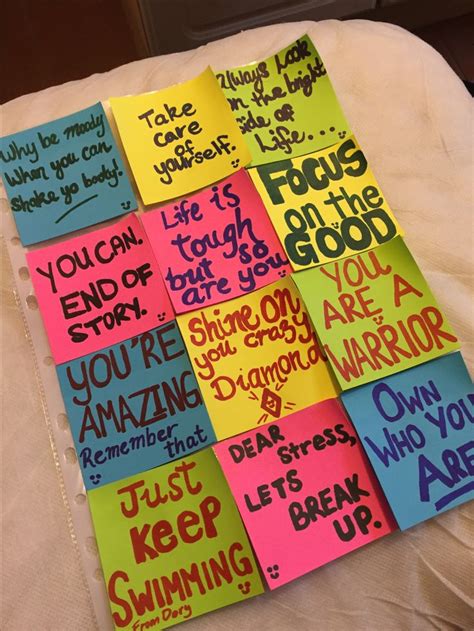 Why be moody
When you can
shake yo body.
Take
care
of
yourself.
Always Look
on the bright
side of
Life...
YOU CAN.
END OF
STORY.
Life is
tough
but so
are you
FOCUS
on the
GOOD
YOU'RE
AMAZING
Remember
that
Shine on
you crazy
Diamond
YOU
ARE A
WARRIOR
Just
KEEP
SWIMMING
From Dory
DEAR
Stress,
LETS
BREAK
UP.
OWN
WHO YOU
ARE